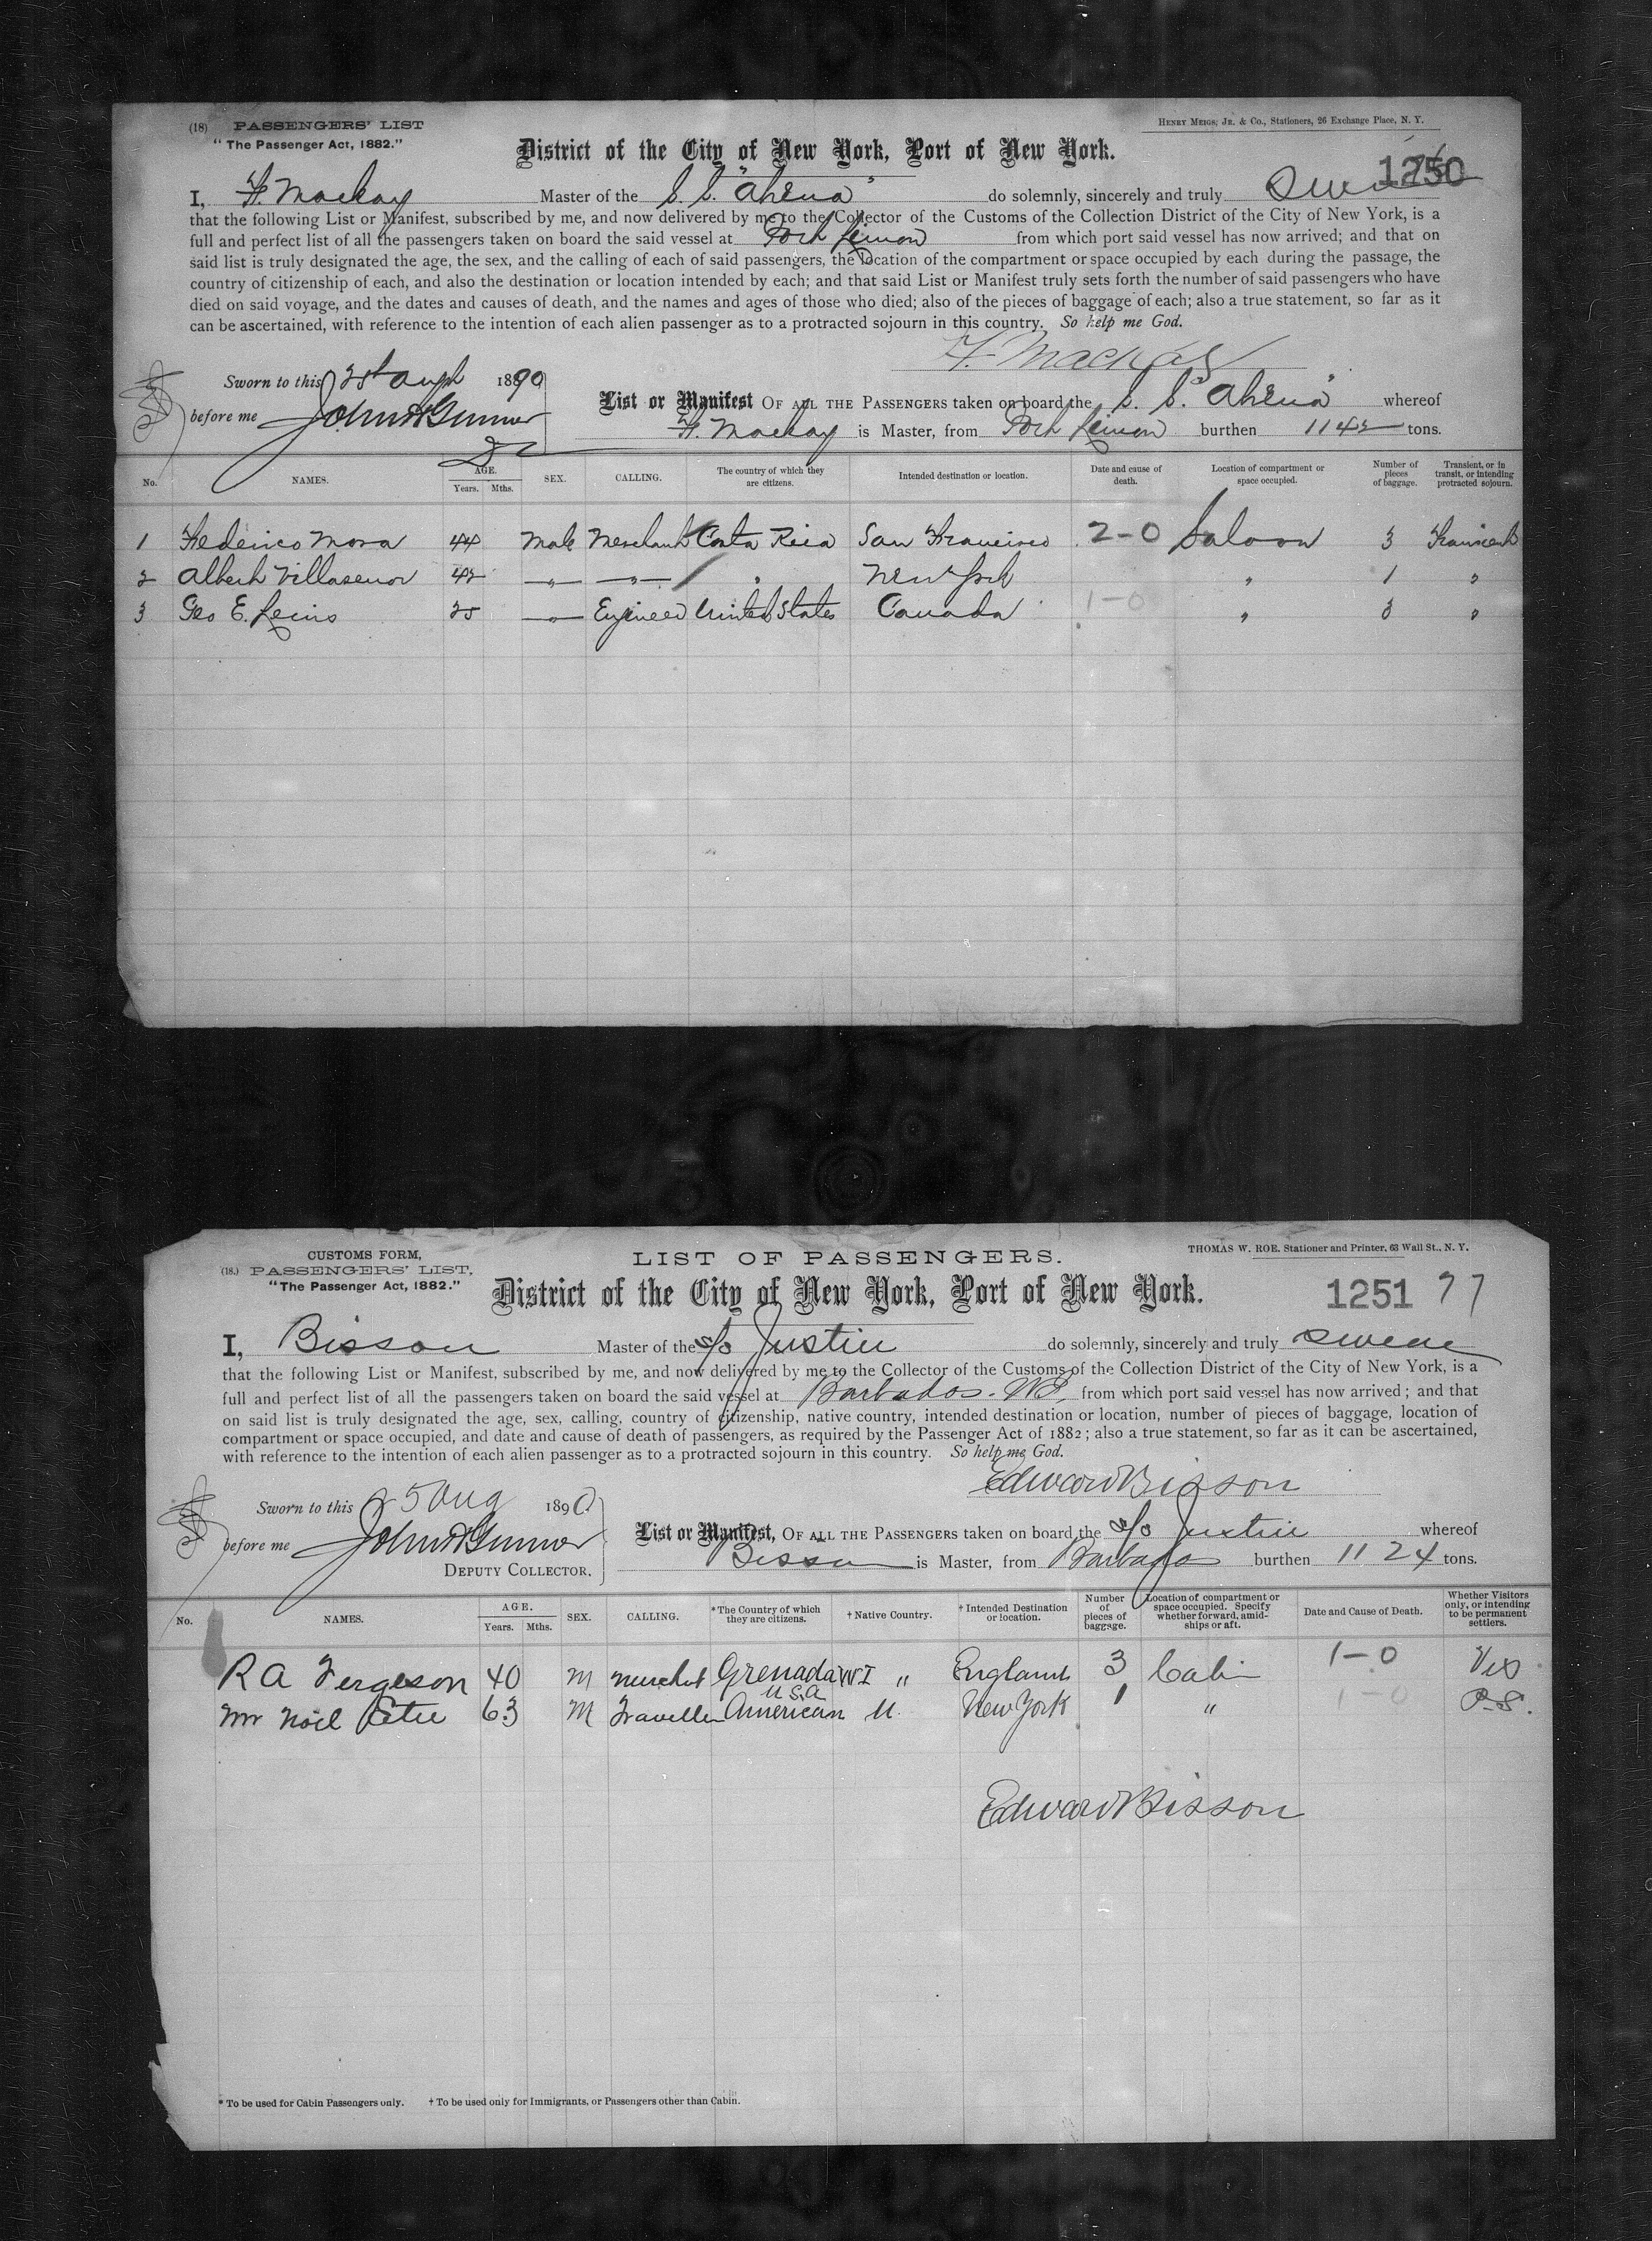 (18) PASSENGERS' LIST
"The Passenger Act, 1882."
HENRY MEIGS, JR. & CO., Stationers, 26 Exchange Place, N. Y.
District of the City of New York, Port of New York.
1250
I, F. Mackay Master of the S. S. "Athena" do solemnly, sincerely and truly Swear
that the following List or Manifest, subscribed by me, and now delivered by me to the Collector of the Customs of the Collection District of the City of New York, is a
full and perfect list of all the passengers taken on board the said vessel at Port Limon from which port said vessel has now arrived; and that on
said list is truly designated the age, the sex, and the calling of each of said passengers, the location of the compartment or space occupied by each during the passage, the
country of citizenship of each, and also the destination or location intended by each; and that said List or Manifest truly sets forth the number of said passengers who have
died on said voyage, and the dates and causes of death, and the names and ages of those who died; also of the pieces of baggage of each; also a true statement, so far as it
can be ascertained, with reference to the intention of each alien passenger as to a protracted sojourn in this country. So help me God.
F. Mackay
Sworn to this 25th Augt 1890
before me John H Gunner
List or Manifest OF ALL THE PASSENGERS taken on board the S. S. "Athena" whereof
F. Mackay is Master, from Port Limon burthen 1142 tons.
No. NAMES. AGE. Years. Mths. SEX. CALLING. The country of which they are citizens. Intended destination or location. Date and cause of death. Location of compartment or space occupied. Number of pieces of baggage. Transient, or in transit, or intending protracted sojourn.
1 Federico Mora 44 Male Merchant Costa Rica San Francisco 2-0 Saloon 3 Transient
2 Albert Villasenor 42 —"— —"— " New York " 1 "
3 Geo E. Lewis 25 —"— Engineer United States Canada 1-0 " 3 "
CUSTOMS FORM,
(18.) PASSENGERS' LIST,
"The Passenger Act, 1882."
LIST OF PASSENGERS.
THOMAS W. ROE, Stationer and Printer, 63 Wall St., N. Y.
District of the City of New York, Port of New York.
1251 77
I, Bisson Master of the S/S Justin do solemnly, sincerely and truly swear
that the following List or Manifest, subscribed by me, and now delivered by me to the Collector of the Customs of the Collection District of the City of New York, is a
full and perfect list of all the passengers taken on board the said vessel at Barbados. WI, from which port said vessel has now arrived; and that
on said list is truly designated the age, sex, calling, country of citizenship, native country, intended destination or location, number of pieces of baggage, location of
compartment or space occupied, and date and cause of death of passengers, as required by the Passenger Act of 1882; also a true statement, so far as it can be ascertained,
with reference to the intention of each alien passenger as to a protracted sojourn in this country. So help me God.
Edward Bisson
Sworn to this 25 Aug 1890
before me John H Gunner
DEPUTY COLLECTOR.
List or Manifest, OF ALL THE PASSENGERS taken on board the S/S Justin whereof
Bisson is Master, from Barbados burthen 1124 tons.
No. NAMES. AGE. Years. Mths. SEX. CALLING. *The Country of which they are citizens. †Native Country. †Intended Destination or location. Number of pieces of baggage. Location of compartment or space occupied. Specify whether forward, amidships or aft. Date and Cause of Death. Whether Visitors only, or intending to be permanent settlers.
R A Fergeson 40 M Merchnt Grenada WI " England 3 Cabin 1-0 Vis
U S A
Mr Noël Petie 63 M Traveller American U. New York 1 " 1-0 P.S.
Edward Bisson
* To be used for Cabin Passengers only. † To be used only for Immigrants, or Passengers other than Cabin.